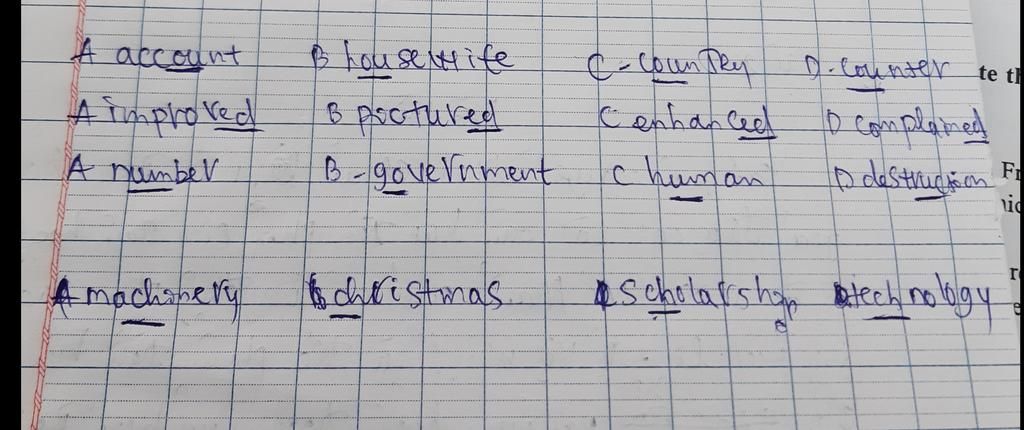 A account B housewife C - country D - counter
A improved B pictured C enhanced D complained
A number B - government C human D destruction
A machinery B christmas C scholarship D technology
te th
Fr